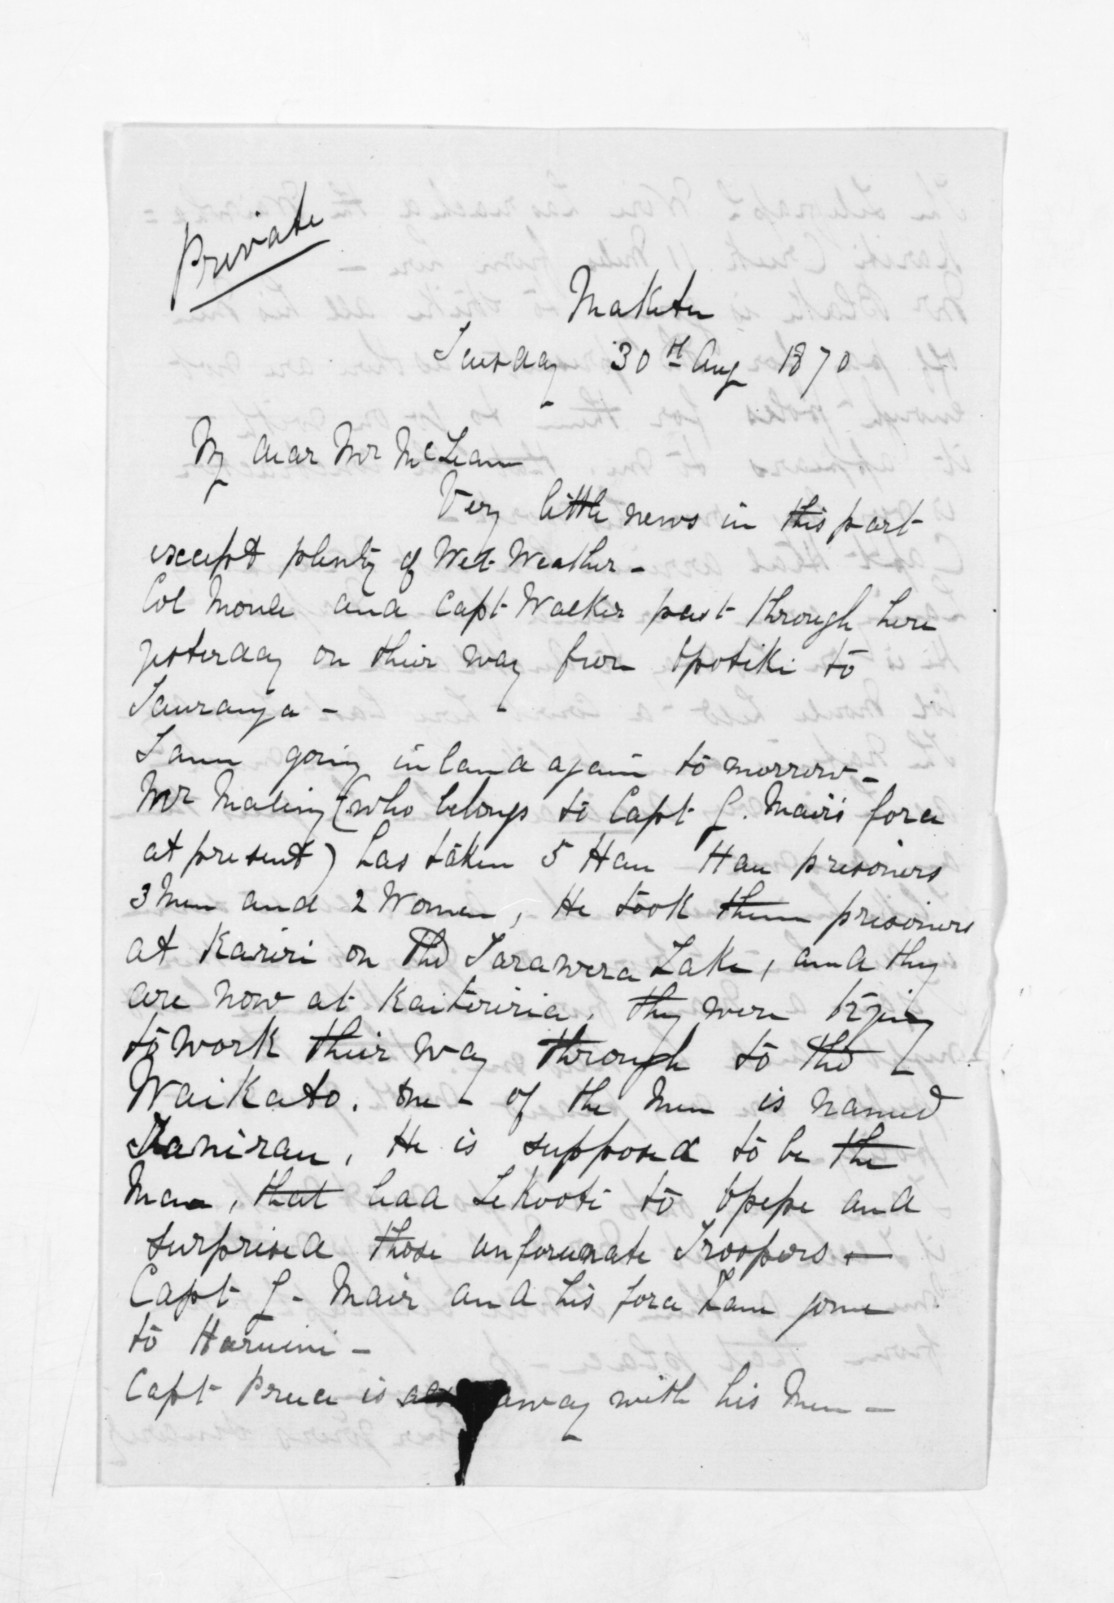 Private
Maketu
Tuesday 30th Aug 1870
My dear Mr McLean
Very little news in this part
except plenty of Wet Weather -
Col Moule and Capt Walker past through here
yesterday on their way from Opotiki to
Tauranga -
I am going inland again tomorrow -
Mr Maling (who belongs to Capt G. Mair's force
at present) has taken 5 Hau Hau prisoners
3 Men and 2 Women, He took them prisoners
at Kariri on the Tarawera Lake, and they
are now at Kaiteriria. they were trying
to work their way through to the
Waikato. one - of the Men is named
He is supposed to be the
Man, that lead Te Kooti to Opepe and
surprised those unforunate Troopers. -
Capt G - Mair and his force have gone
to
Capt Preece is away with his Men -